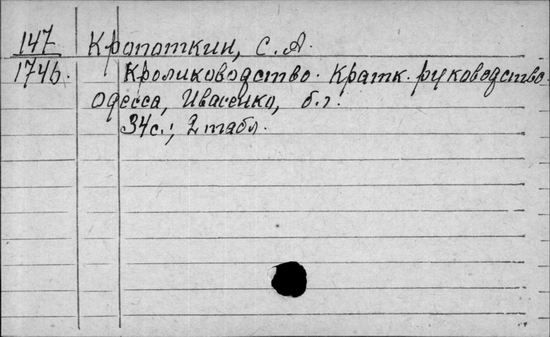 147 Крапоткин, С. А.
1746. Кролиководство. Кратк. руководство.
Одесса, Ивасенко, б. г.
34 с.; 2 табл.